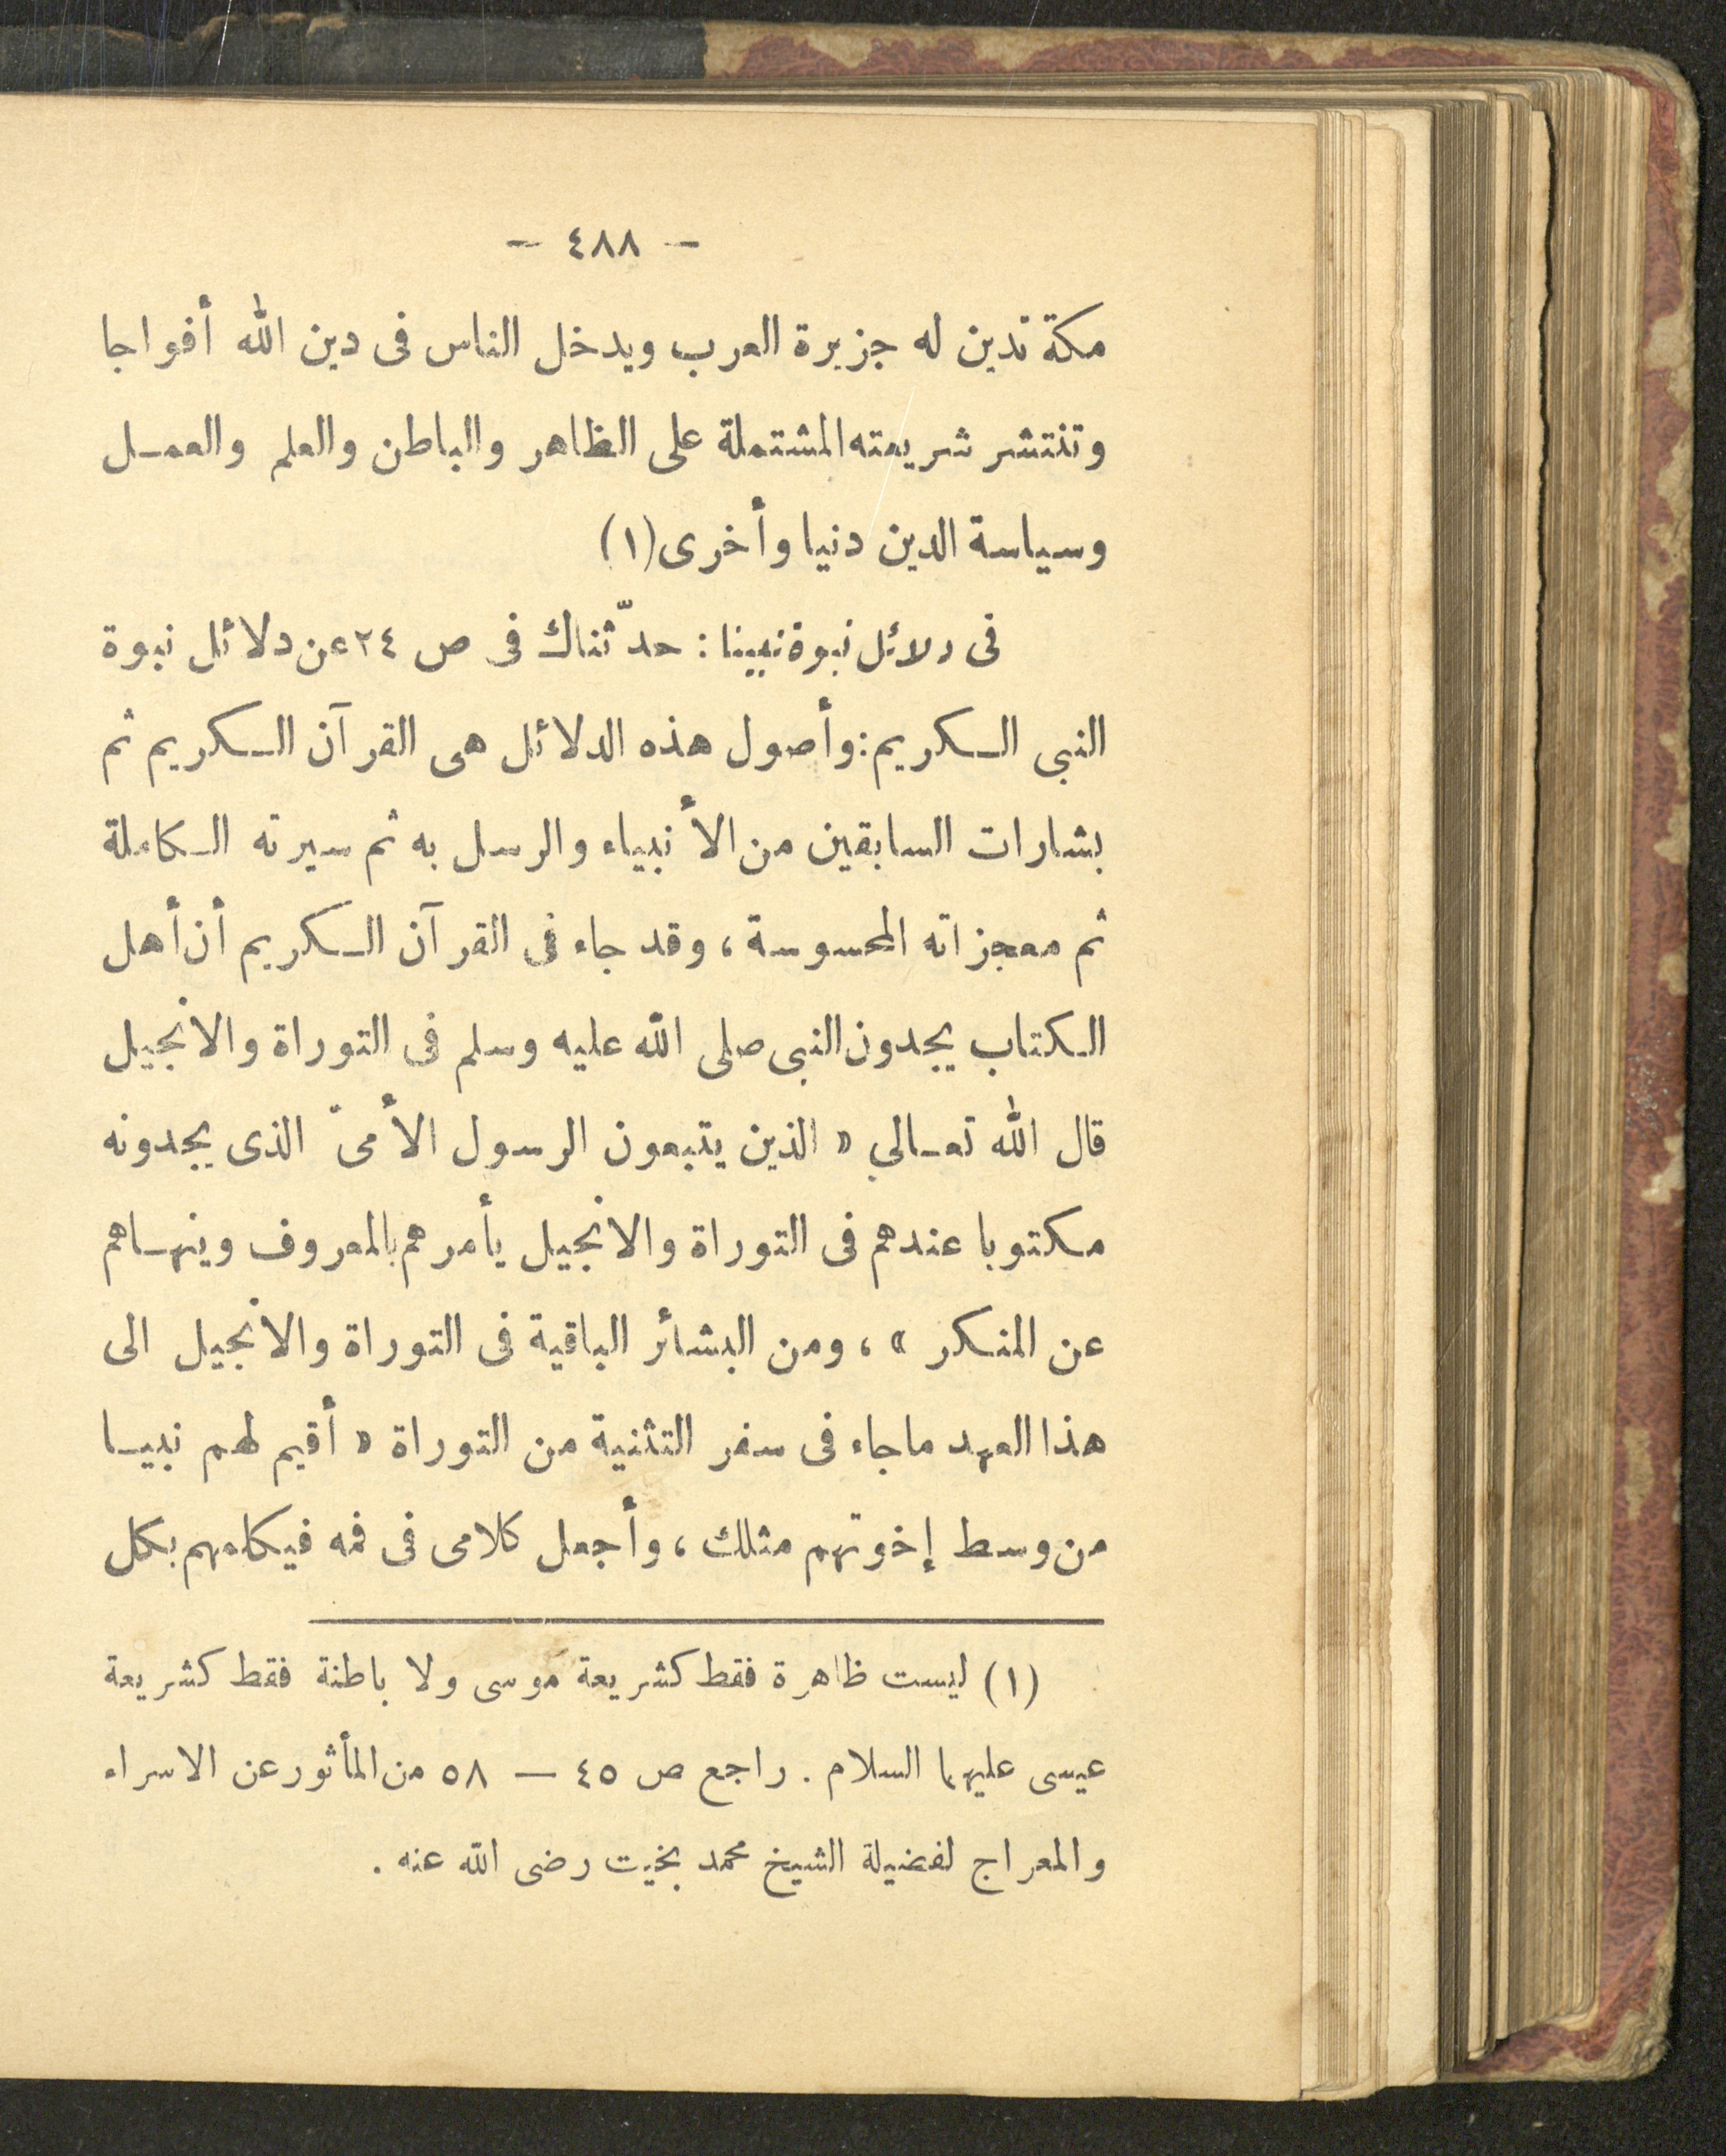 — ٤٨٨ —
مكة تدين له جزيرة العرب ويدخل الناس فى دين الله أفواجا
وتنتشر شريعته المشتملة على الظاهر والباطن والعلم والعمل
وسياسة الدين دنيا وأخرى (١)
فى دلائل نبوة نبينا : حدّثناك فى ص ٢٤ عن دلائل نبوة
النبى الكريم : وأصول هذه الدلائل هى القرآن الكريم ثم
بشارات السابقين من الأنبياء والرسل به ثم سيرته الكاملة
ثم معجزاته المحسوسة ، وقد جاء فى القرآن الكريم أن أهل
الكتاب يجدون النبى صلى الله عليه وسلم فى التوراة والانجيل
قال الله تعالي « الذين يتبعون الرسول الأمىّ الذى يجدونه
مكتوبا عندهم فى التوراة والانجيل يأمرهم بالمعروف وينهاهم
عن المنكر » ، ومن البشائر الباقية فى التوراة والانجيل الى
هذا العهد ماجاء فى سفر التثنية من التوراة « أقيم لهم نبيا
من وسط إخوتهم مثلك ، وأجعل كلامى فى فمه فيكلمهم بكل
(١) ليست ظاهرة فقط كشريعة موسى ولا باطنة فقط كشريعة
عيسى عليهما السلام . راجع ص ٤٥ — ٥٨ من المأثور عن الاسراء
والمعراج لفضيلة الشيخ محمد بخيت رضى الله عنه .